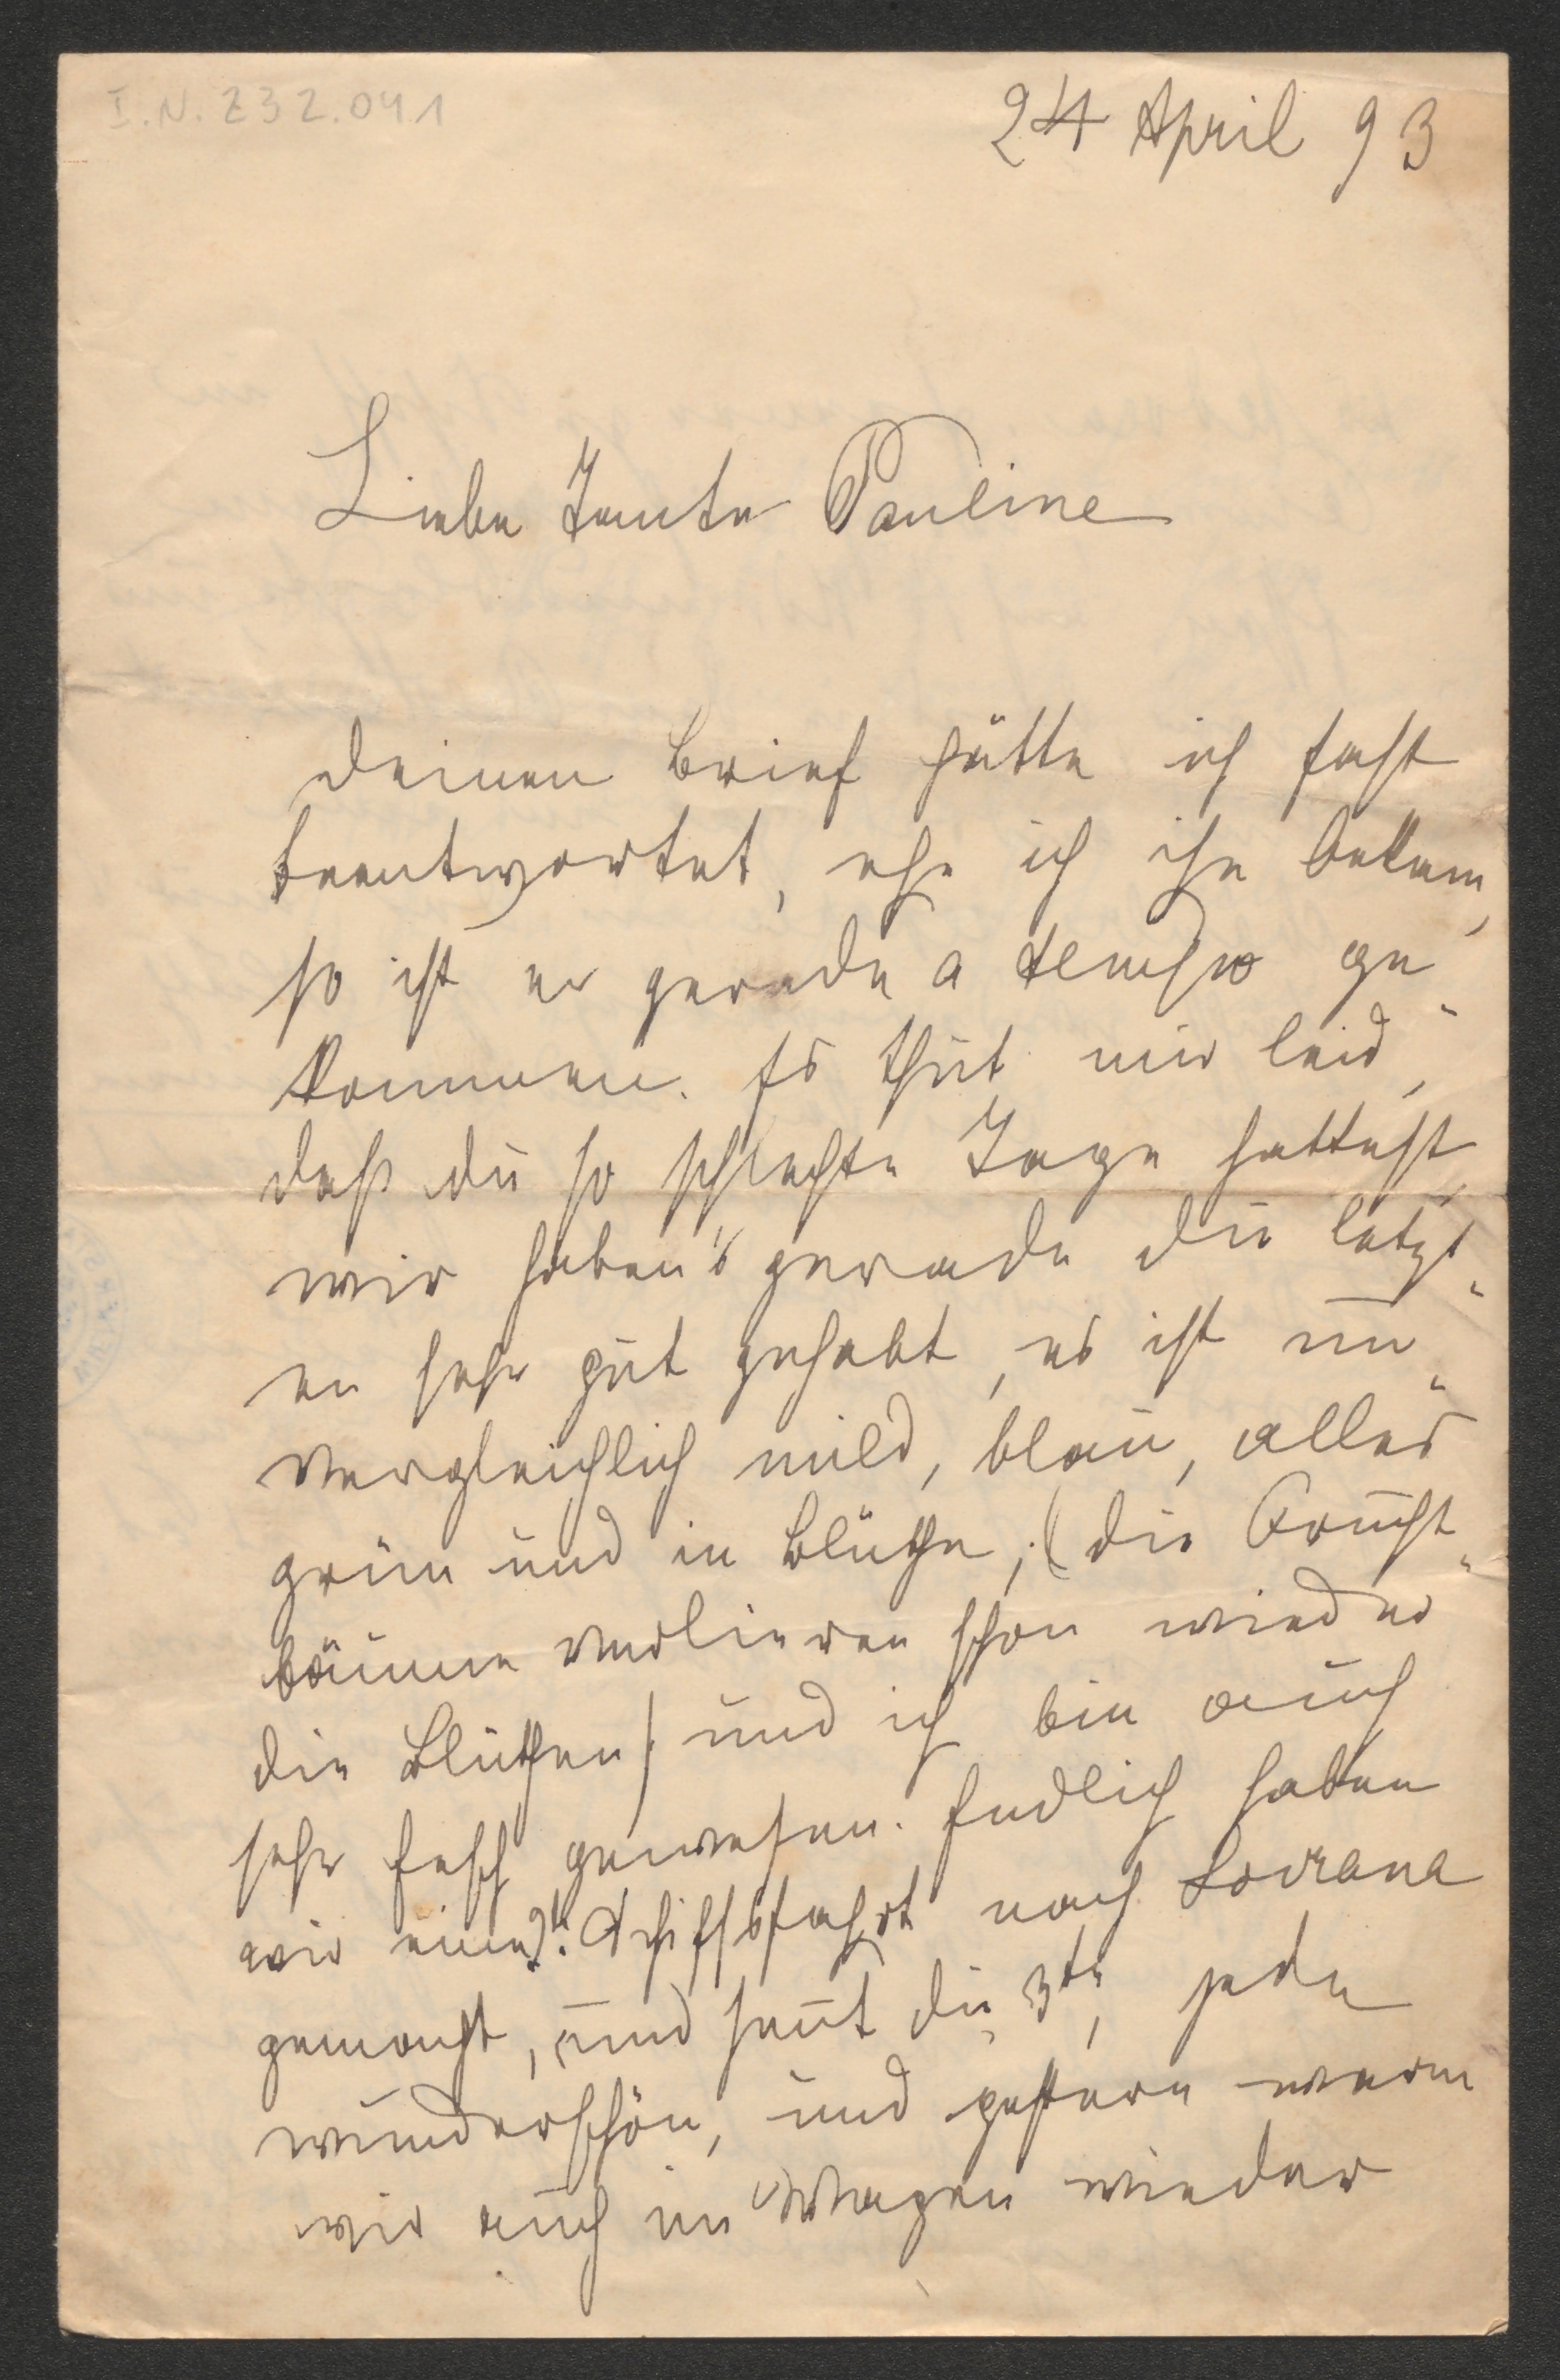 I.N. 232.041
24 April 93
Liebe Tante Pauline
Deinen Brief hätte ich fast
beantwortet, ehe ich ihn bekam,
so ist er gerade a tempo ge-
kommen. Es thut mir leid,
daß du so schlechte Tage hattest,
wir haben's gerade die letzt-
en sehr gut gehabt, es ist un-
vergleichlich mild, blau, alles
grün und in Blüthe, (die Frucht-
bäume verlieren schon wieder
die Blüthen) und ich bin auch
sehr fesch gewesen. Endlich haben
wir eine 2te Schiffsfahrt nach Lovrana
gemacht, und heut die 3te, jede
wunderschön, und gestern warn
wir auch im Wagen wieder